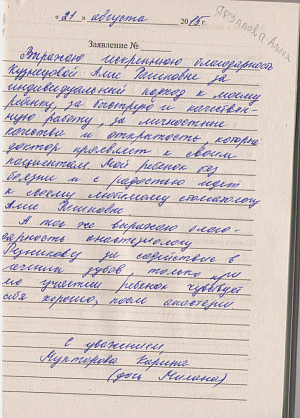 « 21 » августа 2015 г.
Заявление №
Выражаю искреннюю благодарность
Кузнецовой Алие Рениновне за
индивидуальный подход к моему
ребенку, за быструю и качествен-
ную работу, за личностные
качества и открытость, которые
доктор проявляет к своим
пациентам. Мой ребенок без
боязни и с радостью идет
к своему любимому стоматологу
Алие
А так же выражаю благо-
дарность анастезиологу
за содействие в
лечении зубов, только при
его участии ребенок чувствует
себя хорошо, после анастезии
С уважением,
Карина
(дочь Милана)